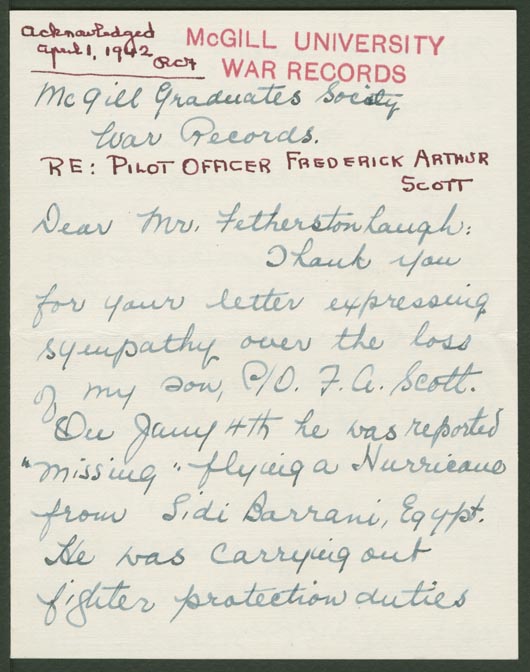 Acknowledged
April 1, 1942
McGILL UNIVERSITY
WAR RECORDS
McGill Graduates Society
War Records.
RE: PILOT OFFICER FREDERICK ARTHUR
SCOTT
Dear Mr. Fetherstonhaugh:
Thank you
for your letter expressing
sympathy over the loss
of my son, P/O. F. A. Scott.
On Jany 4th he was reported
"missing" flying a Hurricane
from Sidi Barrani, Egypt.
He was carrying out
fighter protection duties